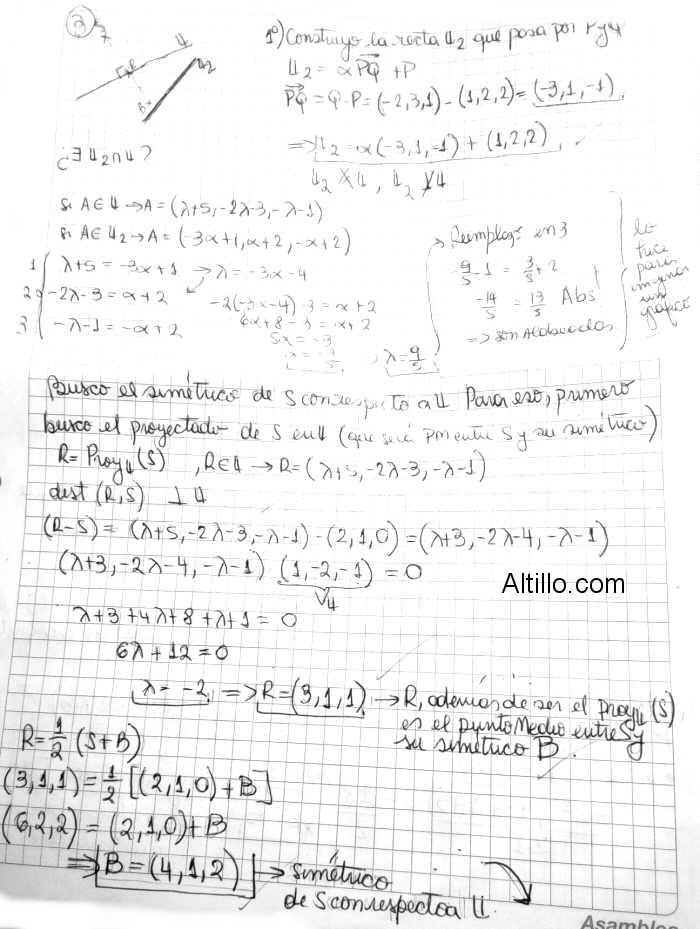 3
1º) Construyo la recta 𝕃₂ que pasa por P y Q
𝕃₂ = α PQ + P
PQ = Q - P = (-2,3,1) - (1,2,2) = (-3,1,-1)
⇒ 𝕃₂ = α(-3,1,-1) + (1,2,2)
¿∃ 𝕃₂∩𝕃?
Si A∈𝕃 → A = (λ+5, -2λ-3, -λ-1)
Si A∈𝕃₂ → A = (-3α+1, α+2, -α+2)
1 λ+5 = -3α+1 → λ = -3α-4
2 -2λ-3 = α+2
3 -λ-1 = -α+2
-2(-3α-4)-3 = α+2
6α+8-3 = α+2
5α = -3
α = -3/5, λ = 9/5
Reemplazo en 3
9/5 - 1 = 3/5 + 2
-14/5 = 13/5 Abs!
⇒ son Alabeadas
lo hice para imaginar un gráfico
Busco el simétrico de S con respecto a 𝕃 Para eso, primero
busco el proyectado de S en 𝕃 (que será PM entre S y su simétrico)
R = Proy𝕃(S), R∈𝕃 → R = (λ+5, -2λ-3, -λ-1)
dist (R,S) ⊥ 𝕃
(R-S) = (λ+5, -2λ-3, -λ-1) - (2,1,0) = (λ+3, -2λ-4, -λ-1)
(λ+3, -2λ-4, -λ-1) (1,-2,-1) = 0
V𝕃
Altillo.com
λ+3+4λ+8+λ+1 = 0
6λ+12 = 0
λ = -2 ⇒ R = (3,1,1) → R, además de ser el proy𝕃(S)
es el punto Medio entre S y
su simétrico B.
R = 1/2 (S+B)
(3,1,1) = 1/2 [(2,1,0) + B]
(6,2,2) = (2,1,0) + B
⇒ B = (4,1,2) → simétrico
de S con respecto a 𝕃.